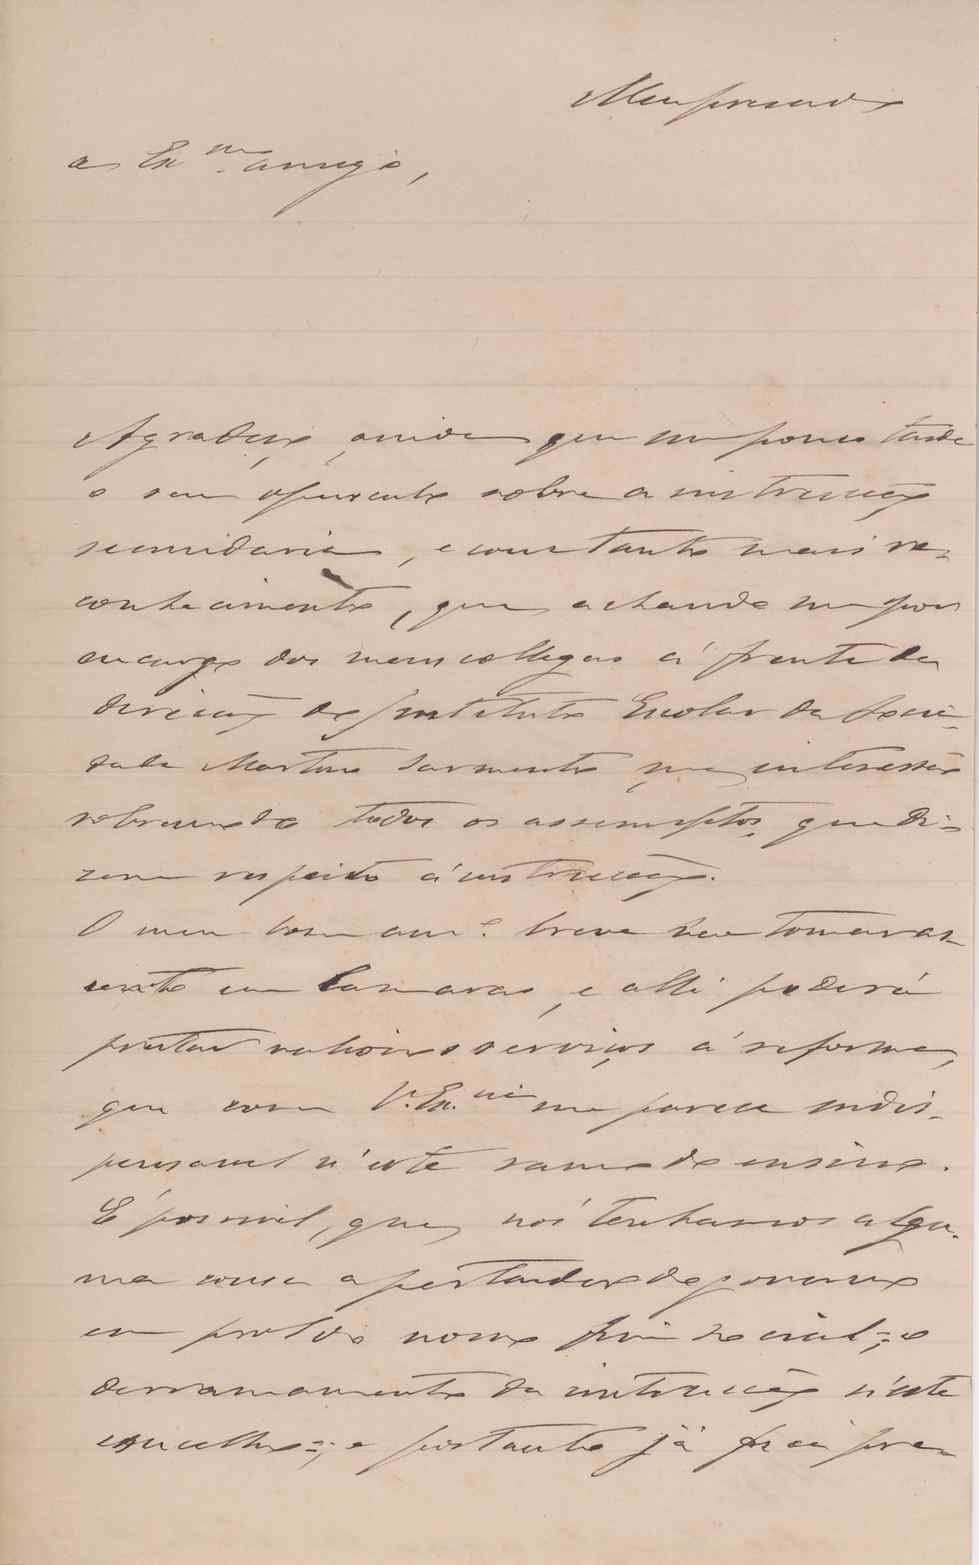 Meu presado
e Ex.mo amigo,
Agradeço, ainda que um pouco tarde
o seu opusculo sobre a instrucção
secundaria, e com tanto mais re-
conhecimento, que achando-me por
encargo dos meus collegas á frente da
direcção do Instituto Escolar da Socie-
dade Martins Sarmento, me interessão
sobremodo todos os assumptos, que di-
zem respeito á instrucção.
O meu bom am.o breve vae tomar as-
sento em Camaras, e alli poderá
prestar valiosos serviços á reforma,
que com V. Ex.cia me parece indis-
pensavel n'este ramo de ensino.
É possivel, que nós tenhamos algu-
ma cousa a pertender do governo
em prol do nosso fim social = o
derramamento da instrucção n'este
concelho =; e portanto já fica pre-